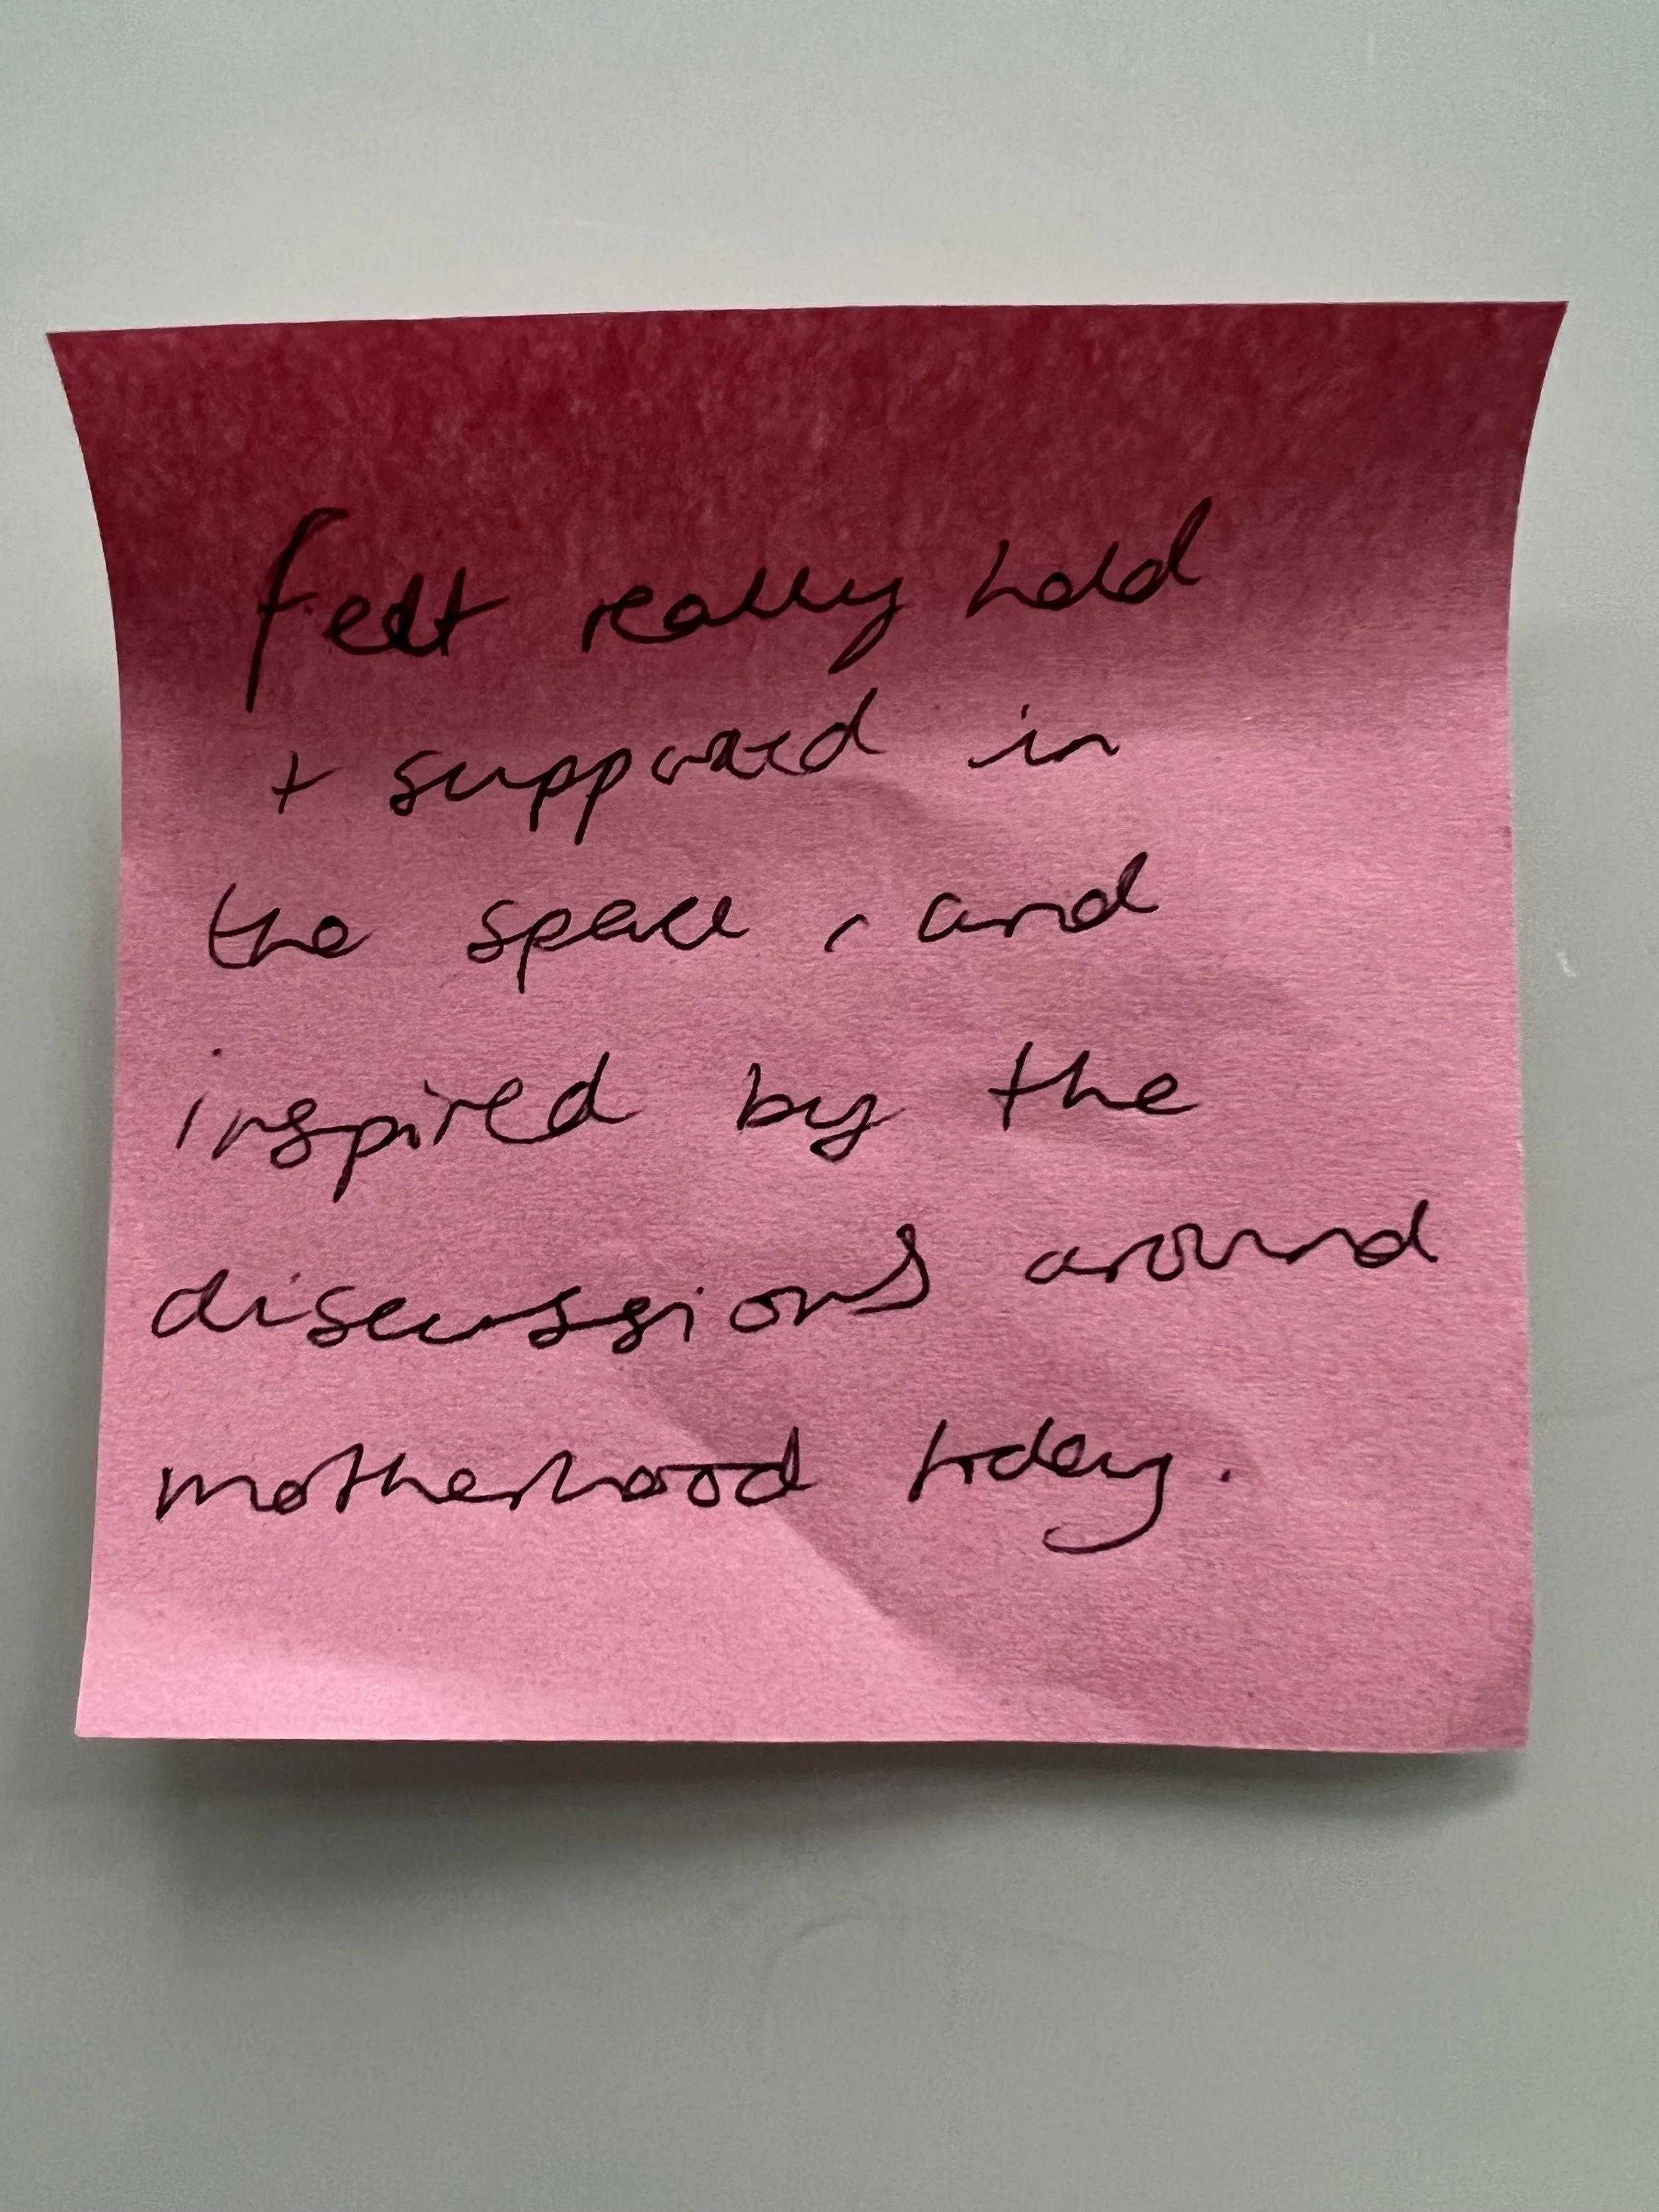 felt really held
+ supported in
the space, and
inspired by the
discussions around
motherhood today.